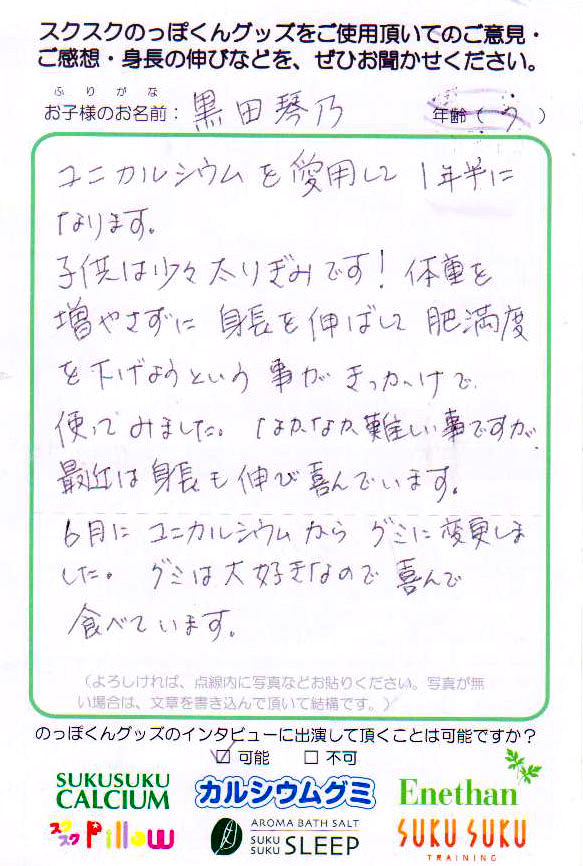 スクスクのっぽくんグッズをご使用頂いてのご意見・
ご感想・身長の伸びなどを、ぜひお聞かせください。
ふりがな
お子様のお名前：黒田琴乃 年齢（7）
ユニカルシウムを愛用して1年半に
なります。
子供は少々太りぎみです！体重を
増やさずに身長を伸ばして肥満度
を下げようという事がきっかけで
使ってみました。なかなか難しい事ですが
最近は身長も伸び喜んでいます。
6月にユニカルシウムからグミに変更しま
した。グミは大好きなので喜んで
食べています。
（よろしければ、点線内に写真などお貼りください。写真が無
い場合は、文章を書き込んで頂いて結構です。）
のっぽくんグッズのインタビューに出演して頂くことは可能ですか？
☑ 可能 □ 不可
SUKUSUKU CALCIUM カルシウムグミ Enethan
スクスク Pillow AROMA BATH SALT SUKU SUKU SLEEP SUKU SUKU TRAINING